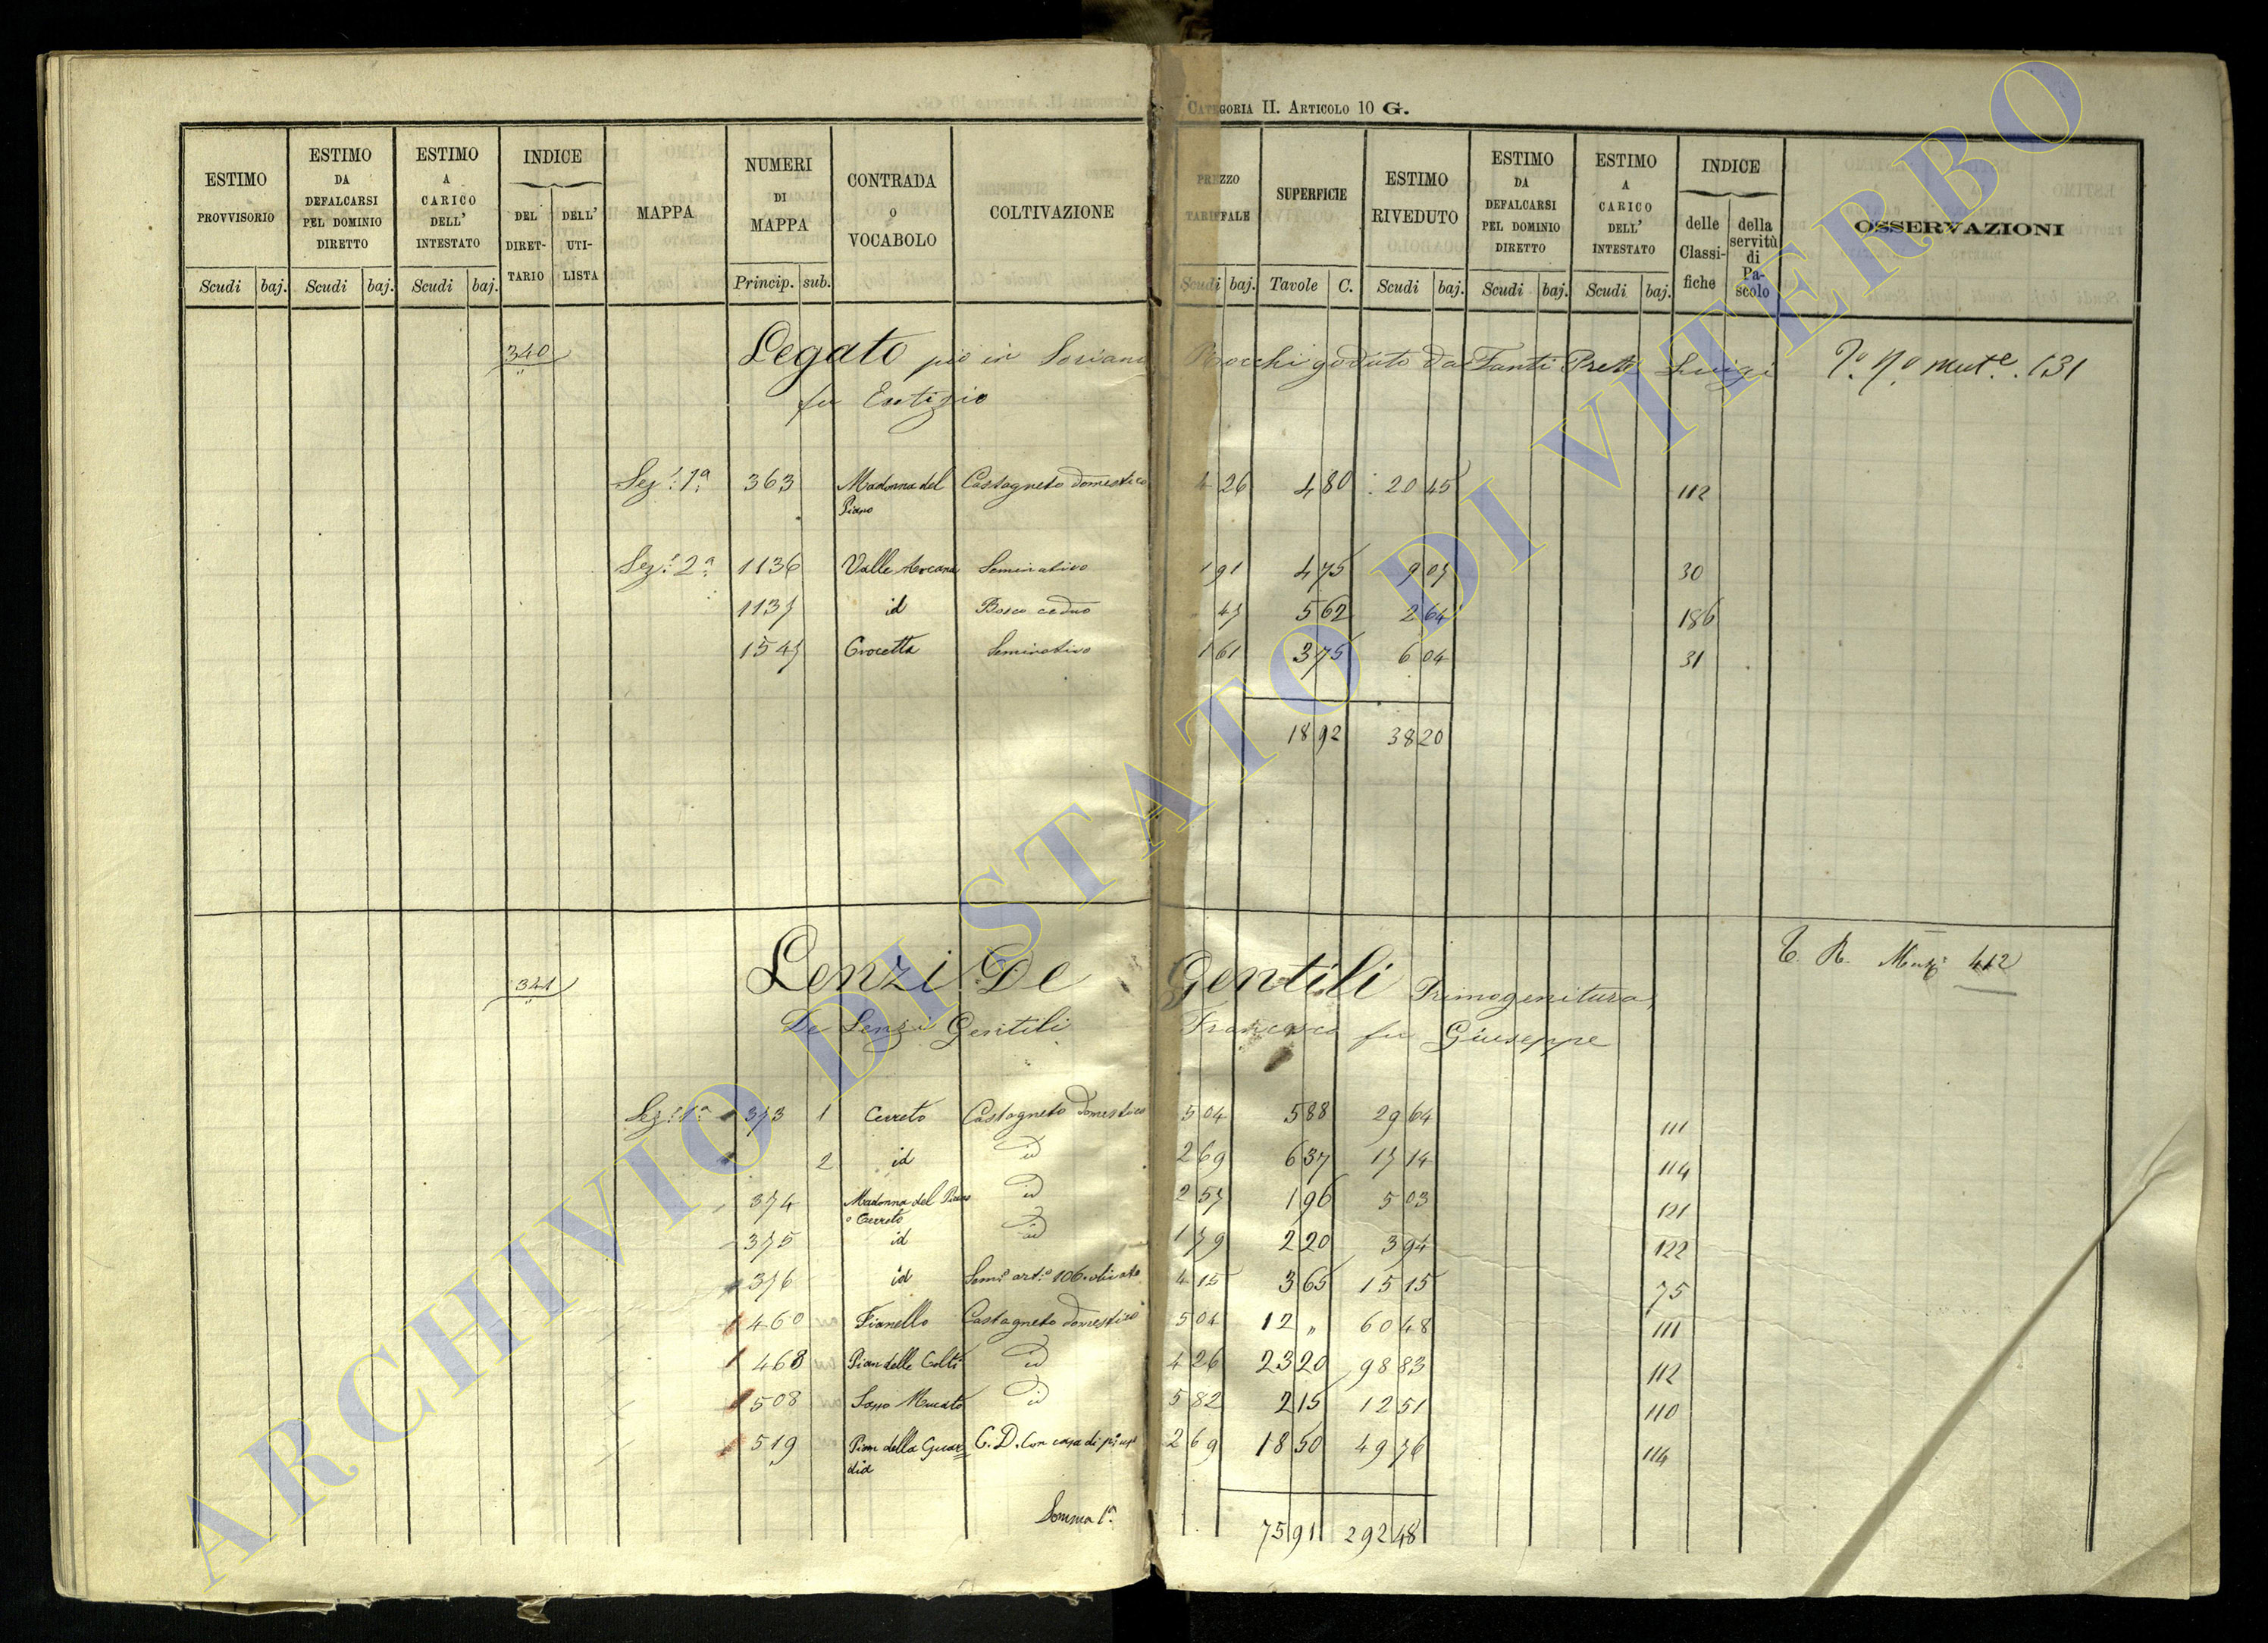 CATEGORIA II. ARTICOLO 10 G.
ESTIMO PROVVISORIO Scudi baj.
ESTIMO DA DEFALCARSI PEL DOMINIO DIRETTO Scudi baj.
ESTIMO A CARICO DELL' INTESTATO Scudi baj.
INDICE DEL DIRET-TARIO DELL' UTI-LISTA
MAPPA
NUMERI DI MAPPA Princip. sub.
CONTRADA O VOCABOLO
COLTIVAZIONE
PREZZO TARIFFALE Scudi baj.
SUPERFICIE Tavole C.
ESTIMO RIVEDUTO Scudi baj.
ESTIMO DA DEFALCARSI PEL DOMINIO DIRETTO Scudi baj.
ESTIMO A CARICO DELL' INTESTATO Scudi baj.
INDICE delle Classi-fiche della servitù di Pa-scolo
OSSERVAZIONI
340 Legato pio in Soriano Rocchi goduto da Santi Prete Luigi 131
fu Eutizio
Sez. 1a 363 Madonna del Piano Castagneto domestico 4 26 4 80 20 45 112
Sez. 2a 1136 Valle Seminativo 1 91 4 75 9 07 30
1137 id Bosco ceduo 47 5 62 2 64 186
1547 Crocetta Seminativo 1 61 3 75 6 04 31
18 92 38 20
341 Lenzi De Gentili Primogenitura T. R. 412
De Lenzi Gentili Francesco fu Giuseppe
Sez. 1a 373 1 Cerreto Castagneto domestico 5 04 5 88 29 64 111
2 id id 2 69 6 37 17 14 114
374 Madonna del Piano o Cerreto id 2 57 1 96 5 03 121
375 id id 1 79 2 20 3 94 122
376 id Semo arto 106 olivato 4 15 3 65 15 15 75
460 Fianello Castagneto domestico 5 04 12 " 60 48 111
468 Pian delle Colti id 4 26 23 20 98 83 112
508 Sasso id 5 82 2 15 12 51 110
519 Pian della Guardia C. D. con casa di 2 69 18 50 49 76 114
Somma 1a 75 91 292 48
ARCHIVIO DI STATO DI VITERBO